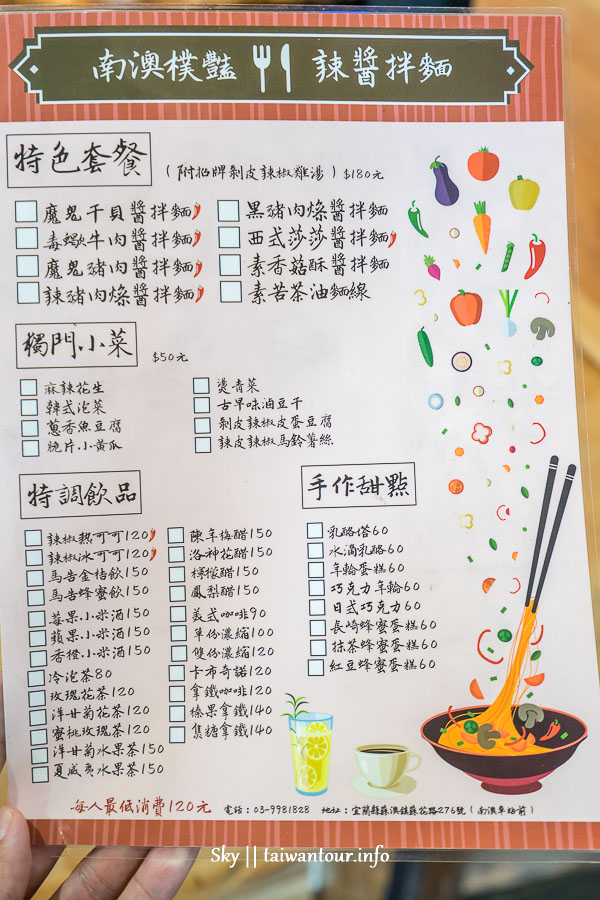 南澳樸豔 辣醬拌麵
特色套餐 (附招牌剝皮辣椒雞湯) $180元
魔鬼干貝醬拌麵
毒蠍牛肉醬拌麵
魔鬼豬肉醬拌麵
辣豬肉燥醬拌麵
黑豬肉燥醬拌麵
西式莎莎醬拌麵
素香菇酥醬拌麵
素苦茶油麵線
獨門小菜 $50元
麻辣花生
韓式泡菜
蔥香魚豆腐
脆片小黃瓜
燙青菜
古早味滷豆干
剝皮辣椒皮蛋豆腐
辣皮辣椒馬鈴薯絲
特調飲品
辣椒熱可可120
辣椒冰可可120
馬告金桔飲150
馬告蜂蜜飲150
莓果小米酒150
蘋果小米酒150
香橙小米酒150
冷泡茶80
玫瑰花茶120
洋甘菊花茶120
蜜桃玫瑰茶120
洋甘菊水果茶150
夏威夷水果茶150
陳年梅醋150
洛神花醋150
檸檬醋150
鳳梨醋150
義式咖啡90
單份濃縮100
雙份濃縮120
卡布奇諾120
拿鐵咖啡120
榛果拿鐵140
焦糖拿鐵140
手作甜點
乳酪塔60
水滴乳酪60
年輪蛋糕60
巧克力年輪60
日式巧克力60
長崎蜂蜜蛋糕60
抹茶蜂蜜蛋糕60
紅豆蜂蜜蛋糕60
每人最低消費120元 電話:03-9981828 地址:宜蘭縣蘇澳鎮蘇花路276號(南澳車站前)
Sky || taiwantour.info